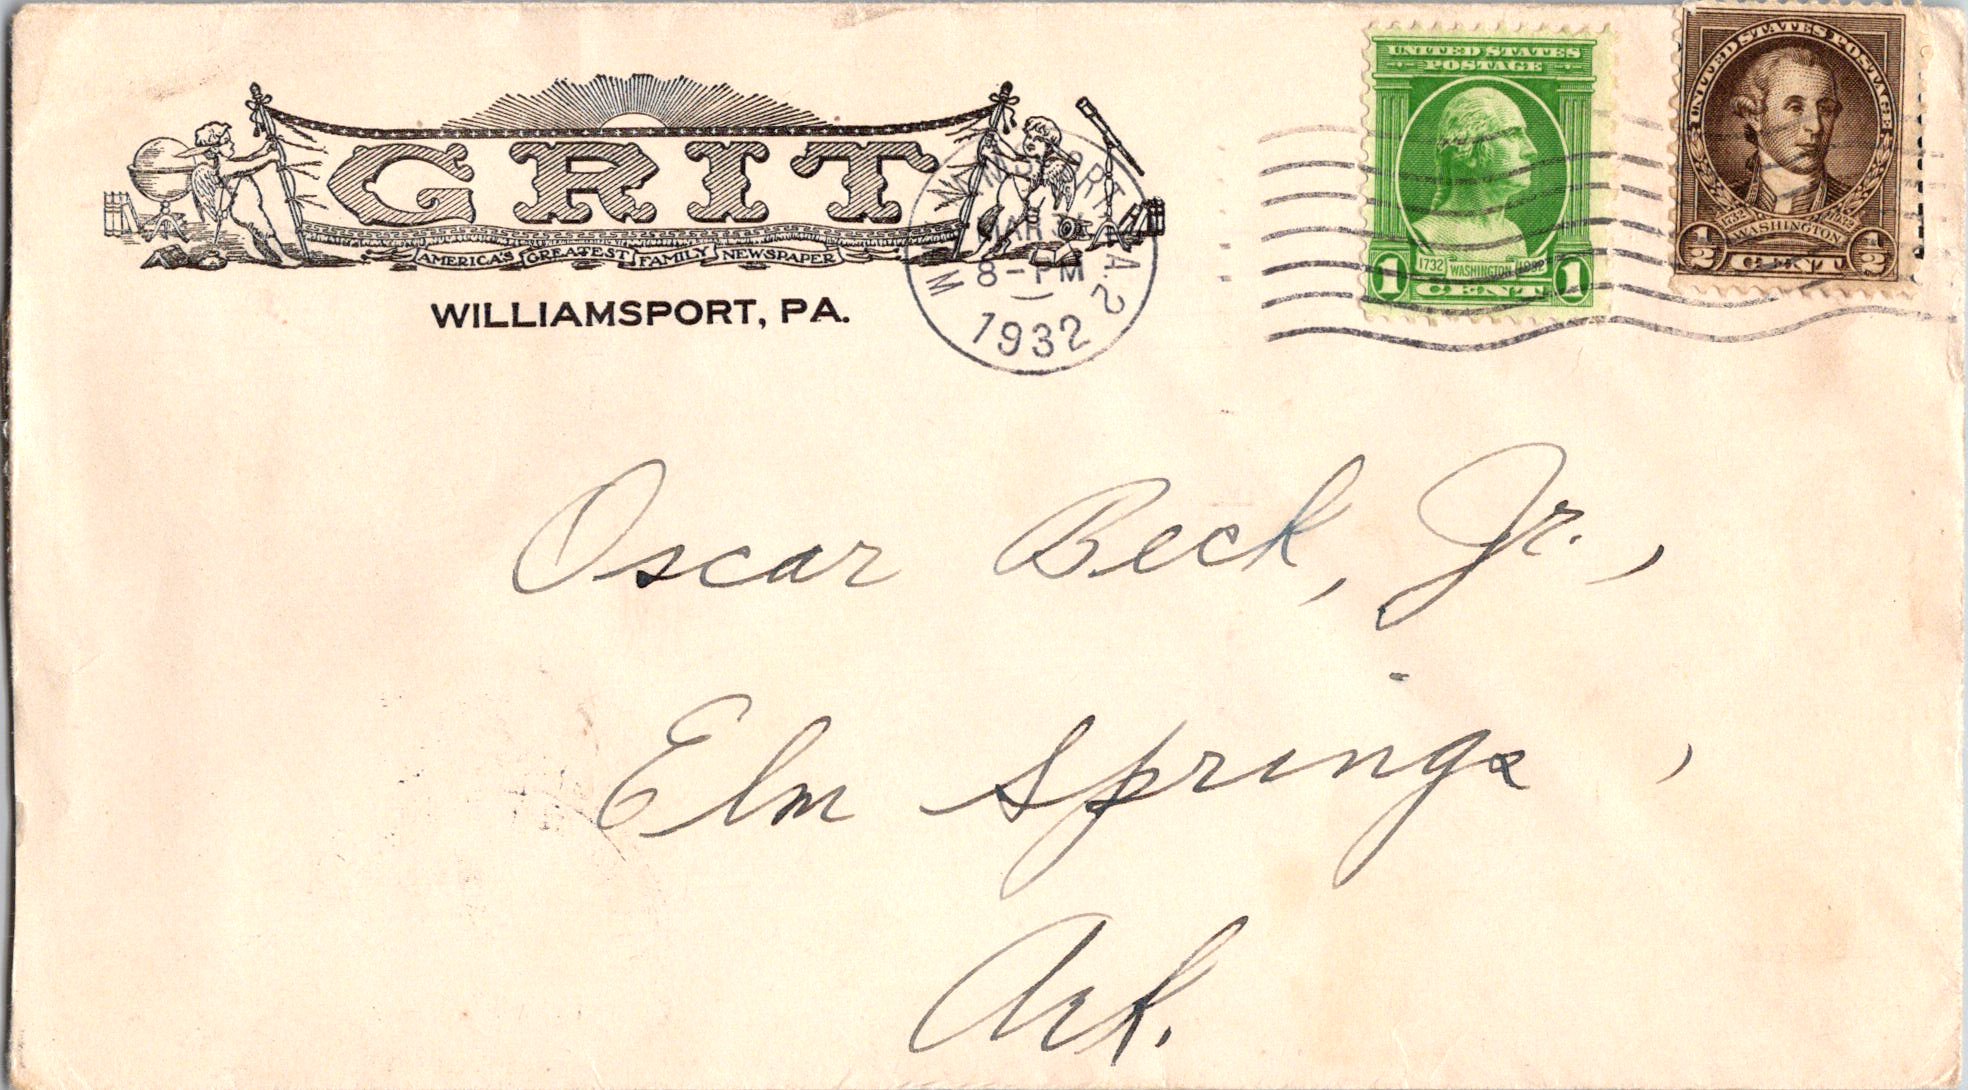 GRIT
AMERICA'S GREATEST FAMILY NEWSPAPER
WILLIAMSPORT, PA.
WILLIAMSPORT, PA. 2
MAR
8-PM
1932
UNITED STATES
POSTAGE
1732 WASHINGTON 1932
1 CENT 1
UNITED STATES POSTAGE
1732 1932
WASHINGTON
1/2 CENT 1/2
Oscar Beck, Jr.,
Elm Springs,
Ark.